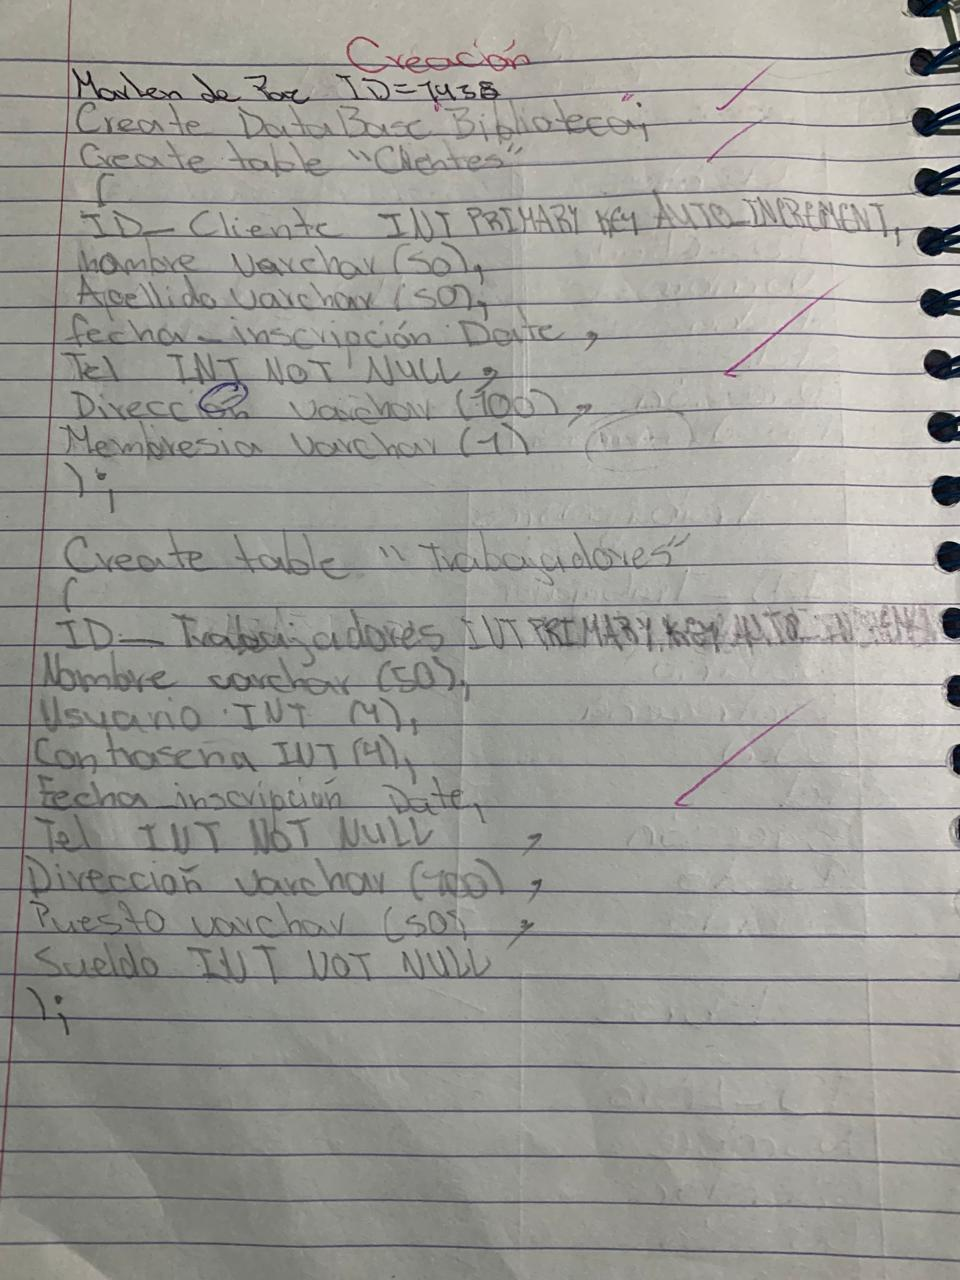 Creación
Marlen de Paz ID=1438
Create DataBase "Biblioteca";
Create table "Clientes"
(
ID_Cliente INT PRIMARY KEY AUTO_INCREMENT,
nombre varchar (50),
Apellido varchar (50),
fecha_inscripción Date,
Tel INT NOT NULL,
Dirección varchar (100),
Membresia varchar (1)
);
Create table "Trabajadores"
(
ID_Trabajadores INT PRIMARY KEY AUTO_INCREMENT
Nombre varchar (50),
Usuario INT (4),
Contraseña INT (4),
Fecha_inscripción Date,
Tel INT NOT NULL,
Dirección varchar (100),
Puesto varchar (50),
Sueldo INT NOT NULL
);